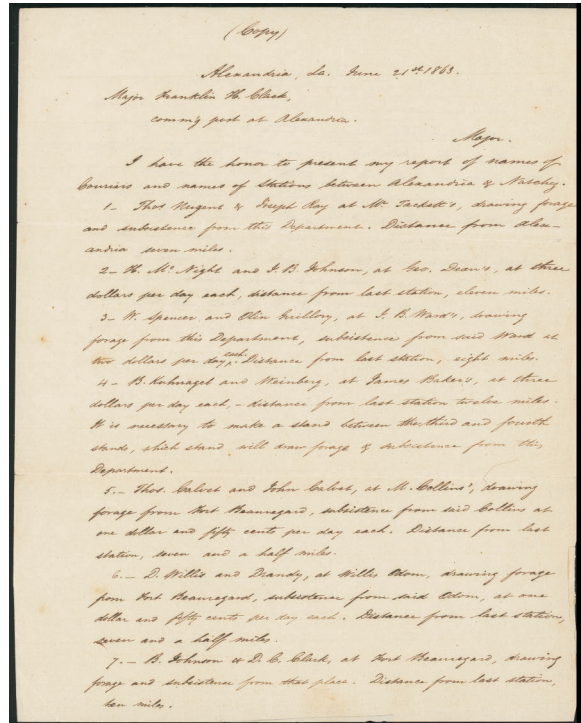 (Copy)
Alexandria, La. June 21st 1863.
Major Franklin H. Clack,
comm'g post at Alexandria.
Major.
I have the honor to present my report of names of
Couriers and names of Stations between Alexandria & Natchez.
1- Thos Nugent & Joseph Ray at Mr Tackett's, drawing forage
and subsistence from this Department. Distance from Alex-
andria seven miles.
2- H. McNight and J. B. Johnson, at Geo. Dean's, at three
dollars per day each, distance from last station, eleven miles.
3- W. Spencer and Olin Guillory, at J. B. Ward's, drawing
forage from this Department, subsistence from said Ward at
two dollars per day each. Distance from last station, eight miles.
4- B. Kuhnagel and Weinberg, at James Baker's, at three
dollars per day each,- distance from last station twelve miles.
It is necessary to make a stand between the third and fourth
stands, which stand will draw forage & subsistence from this
Department.
5.- Thos. Calvet and John Calvet, at M. Collins', drawing
forage from Fort Beauregard, subsistence from said Collins at
one dollar and fifty cents per day each. Distance from last
station, seven and a half miles.
6.- D. Willis and Dandy, at Willis Odom, drawing forage
from Fort Beauregard, subsistence from said Odom, at one
dollar and fifty cents per day each. Distance from last station,
seven and a half miles.
7.- B. Johnson & D. C. Clark, at Fort Beauregard, drawing
forage and subsistence from that place. Distance from last station,
ten miles.